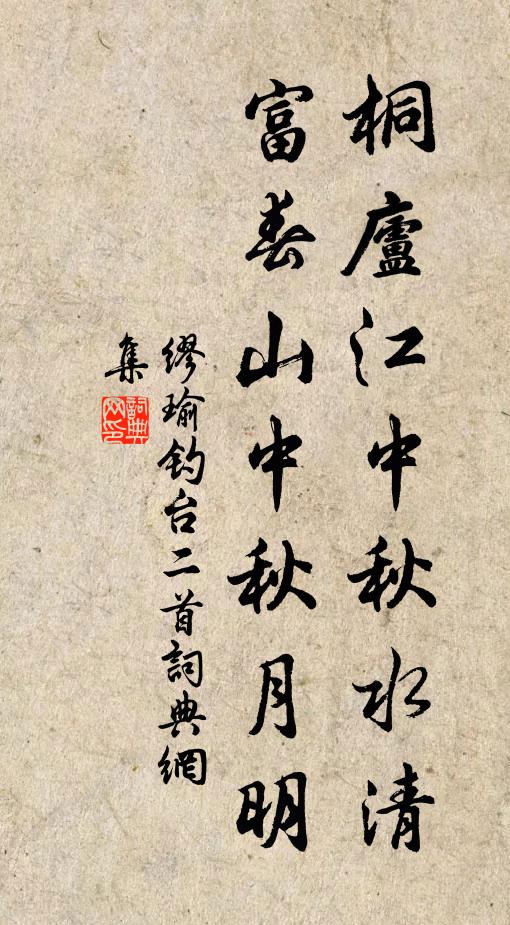 桐廬江中秋水清
富春山中秋月明
繆瑜釣台二首詞典網
集
詞典網印